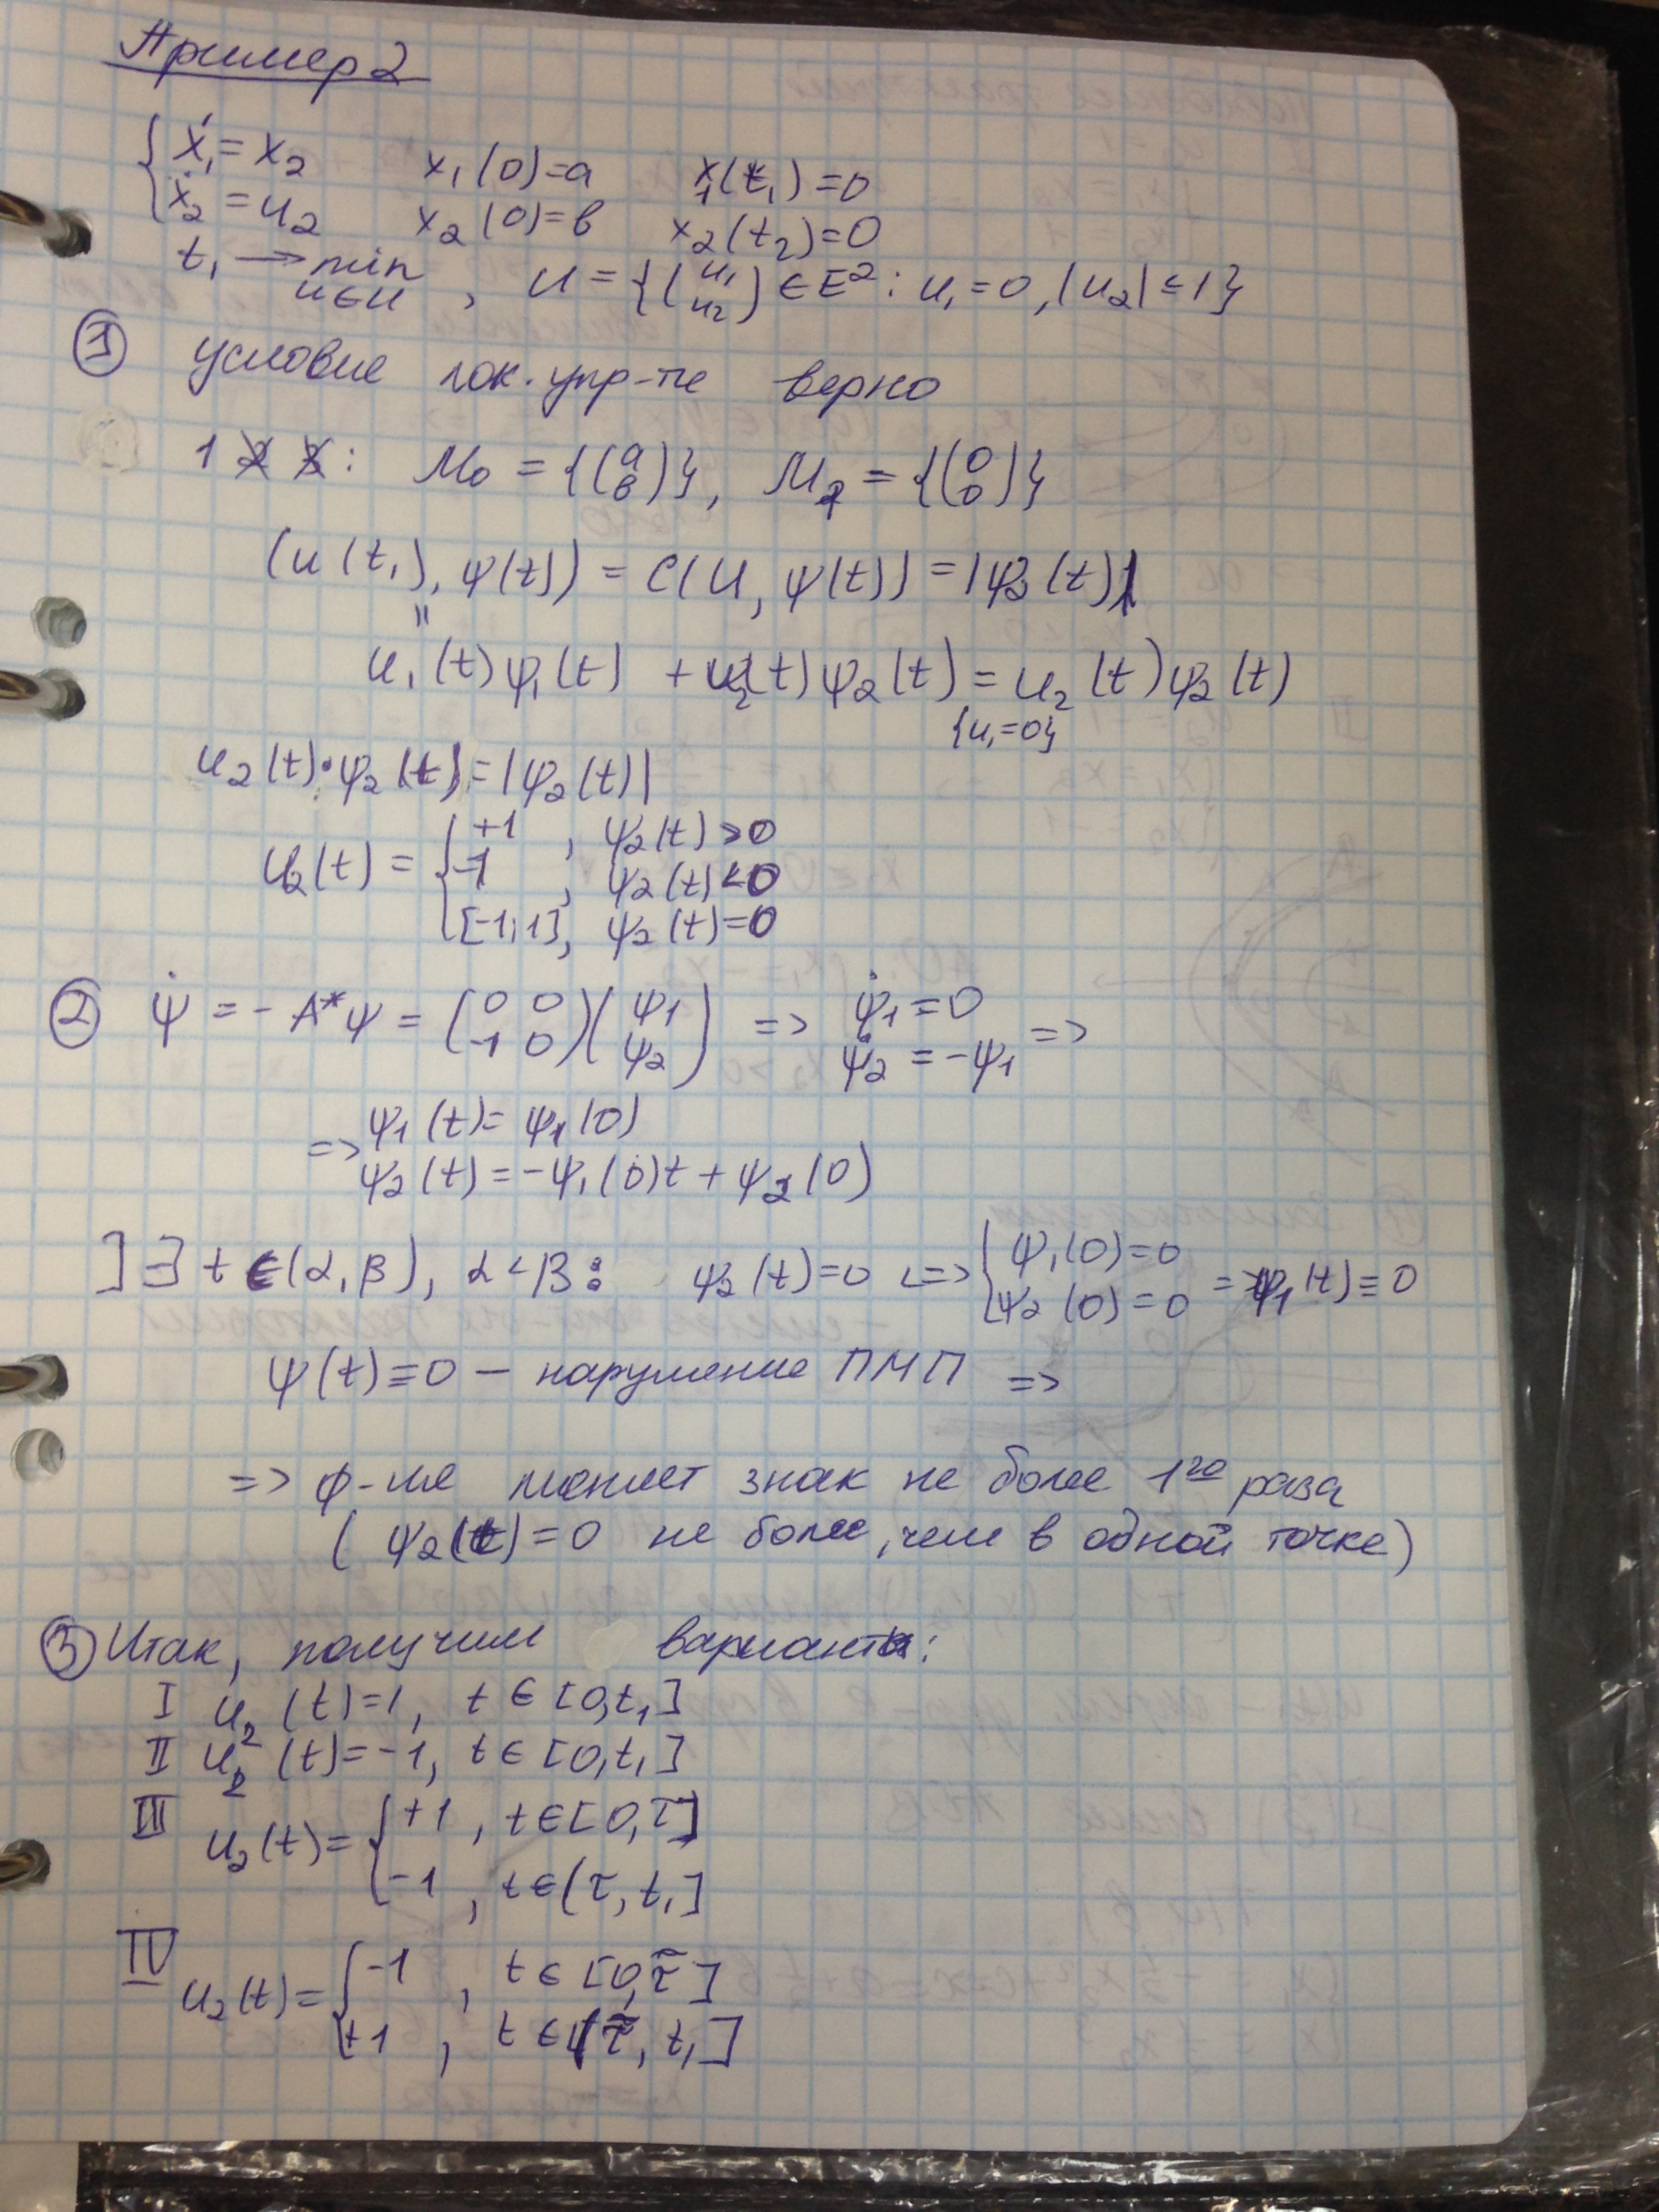 Пример 2
{ ẋ₁ = x₂   x₁(0)=a   x₁(t₁)=0
ẋ₂ = u₂   x₂(0)=b   x₂(t₂)=0
t₁ → min u∈U , U = {(u₁ u₂) ∈ E²: u₁=0, |u₂| ≤ 1}
① условие лок. упр-ти верно
1 : M₀ = {(a b)}, M₁ = {(0 0)}
(u(t₁), ψ(t)) = C(U, ψ(t)) = |ψ₂(t)|
"
u₁(t)ψ₁(t) + u₂(t)ψ₂(t) = u₂(t)ψ₂(t)
{u₁=0}
u₂(t)·ψ₂(t) = |ψ₂(t)|
u₂(t) = { +1 , ψ₂(t) > 0
-1 , ψ₂(t) < 0
[-1;1], ψ₂(t)=0
② ψ̇ = -A*ψ = (0 0 -1 0)(ψ₁ ψ₂) => ψ̇₁ = 0
ψ̇₂ = -ψ₁ =>
=> ψ₁(t) = ψ₁(0)
ψ₂(t) = -ψ₁(0)t + ψ₂(0)
] ∃ t ∈ (α, β), α < β : ψ₂(t)=0 <=> { ψ₁(0)=0 ψ₂(0)=0 => ψ₁(t) ≡ 0
ψ(t) ≡ 0 – нарушение ПМП =>
=> ф-ия меняет знак не более 1го раза
( ψ₂(t) = 0 не более, чем в одной точке)
③ Итак, получим варианты:
I u₂(t)=1, t ∈ [0,t₁]
II u₂(t)=-1, t ∈ [0,t₁]
III u₂(t) = { +1 , t∈[0,τ]
-1 , t∈(τ, t₁]
IV u₂(t) = { -1 , t ∈ [0, τ̃]
+1 , t ∈ (τ̃, t₁]